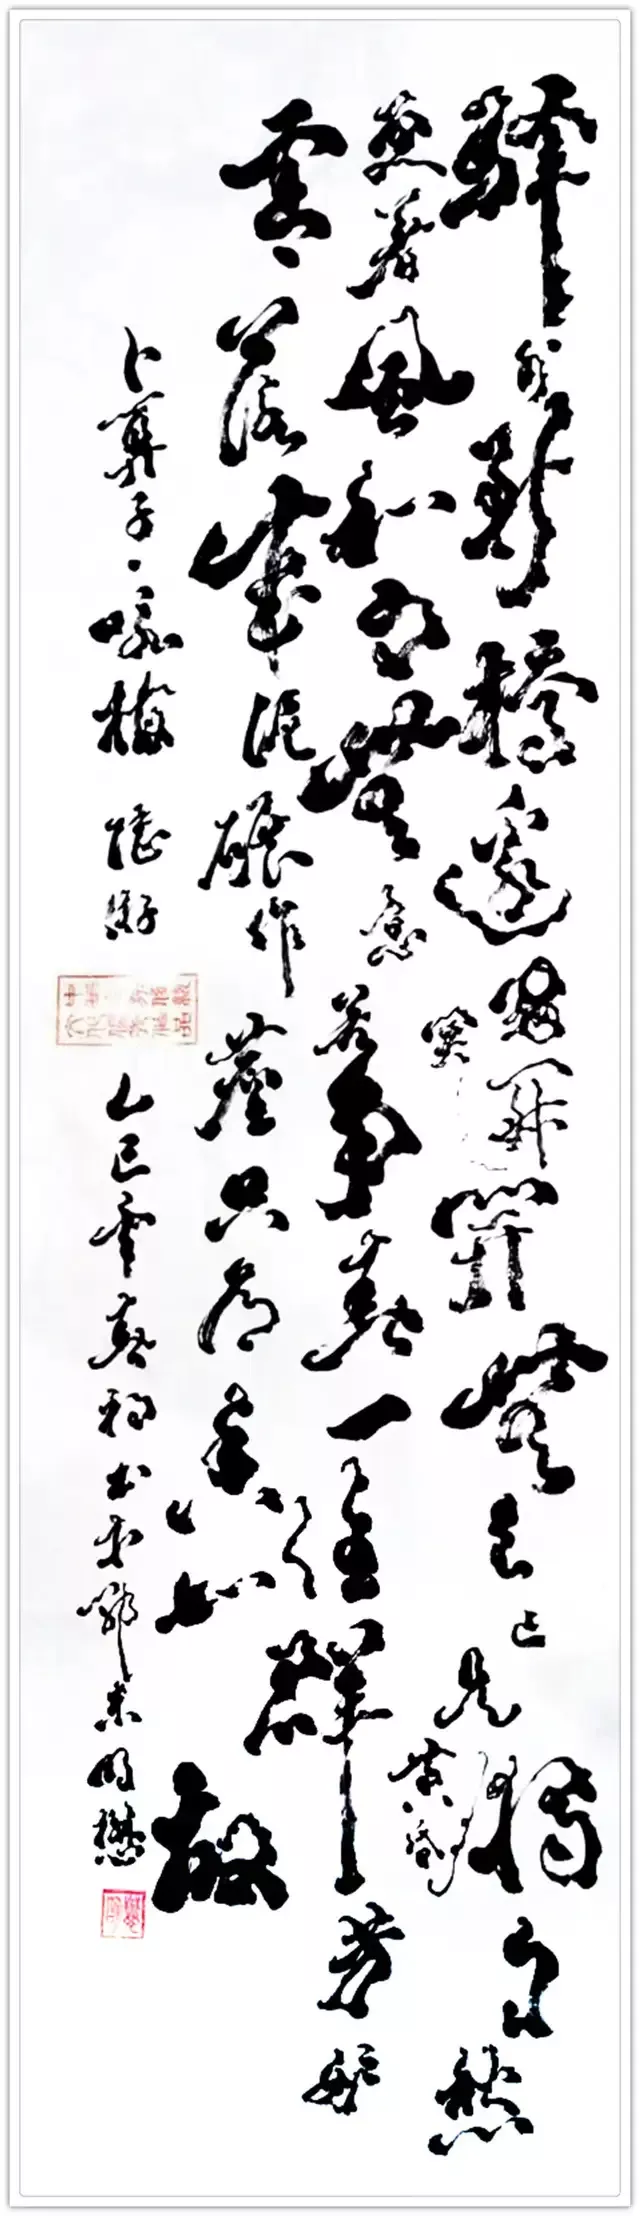 驛外斷橋邊寂寞開無主已是黃昏獨自愁
著風和雨無意苦爭春一任群芳妒
零落成泥碾作塵只有香如故
卜算子·咏梅 陸游 乙巳年春初書於鄂東明懋